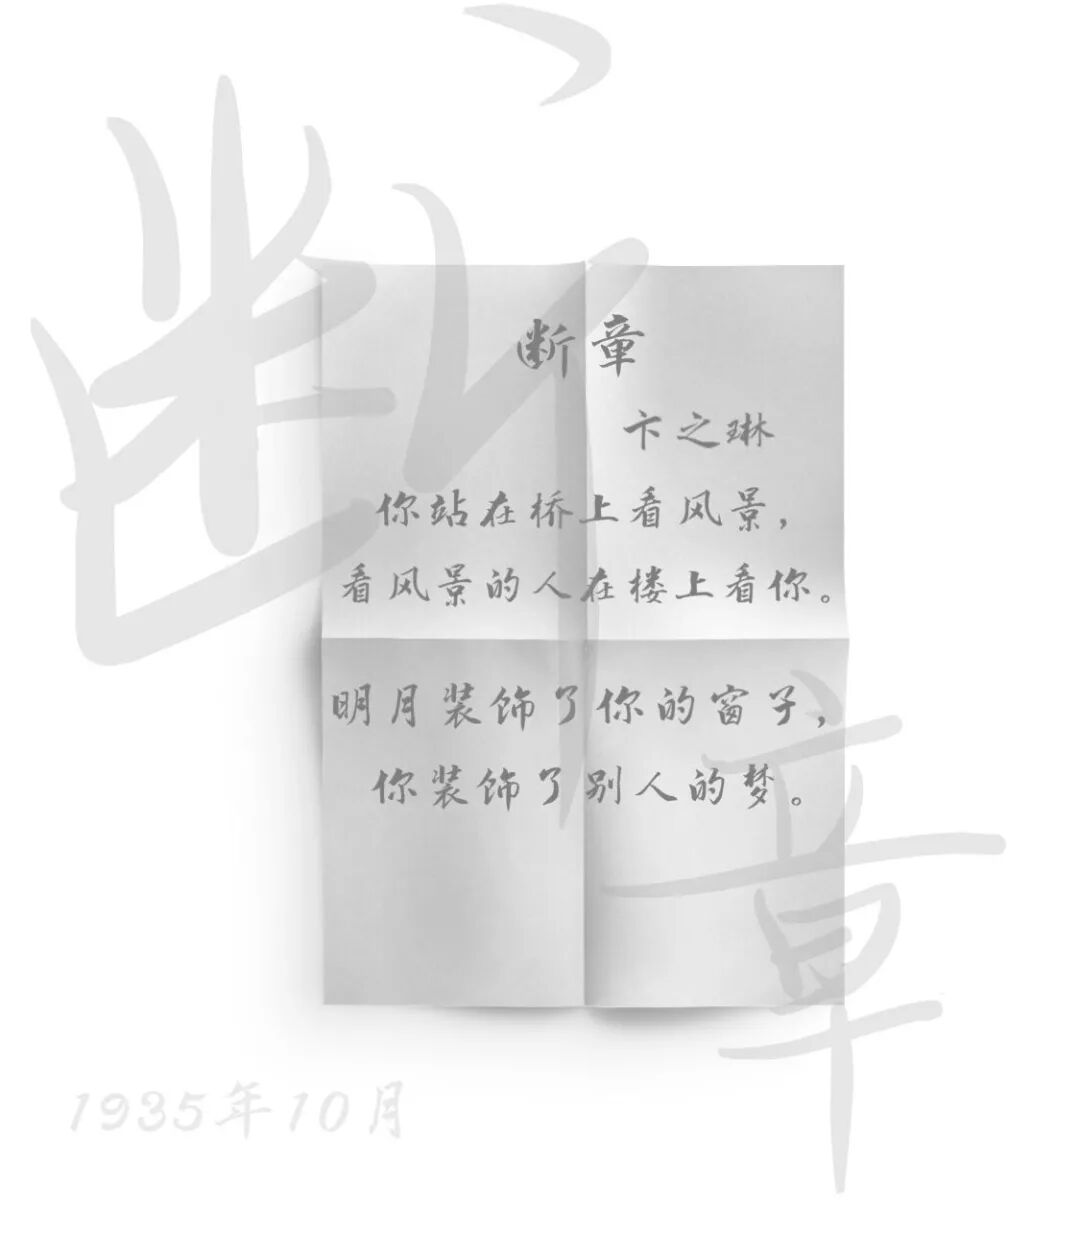 断章
断章
卞之琳
你站在桥上看风景，
看风景的人在楼上看你。
明月装饰了你的窗子，
你装饰了别人的梦。
1935年10月